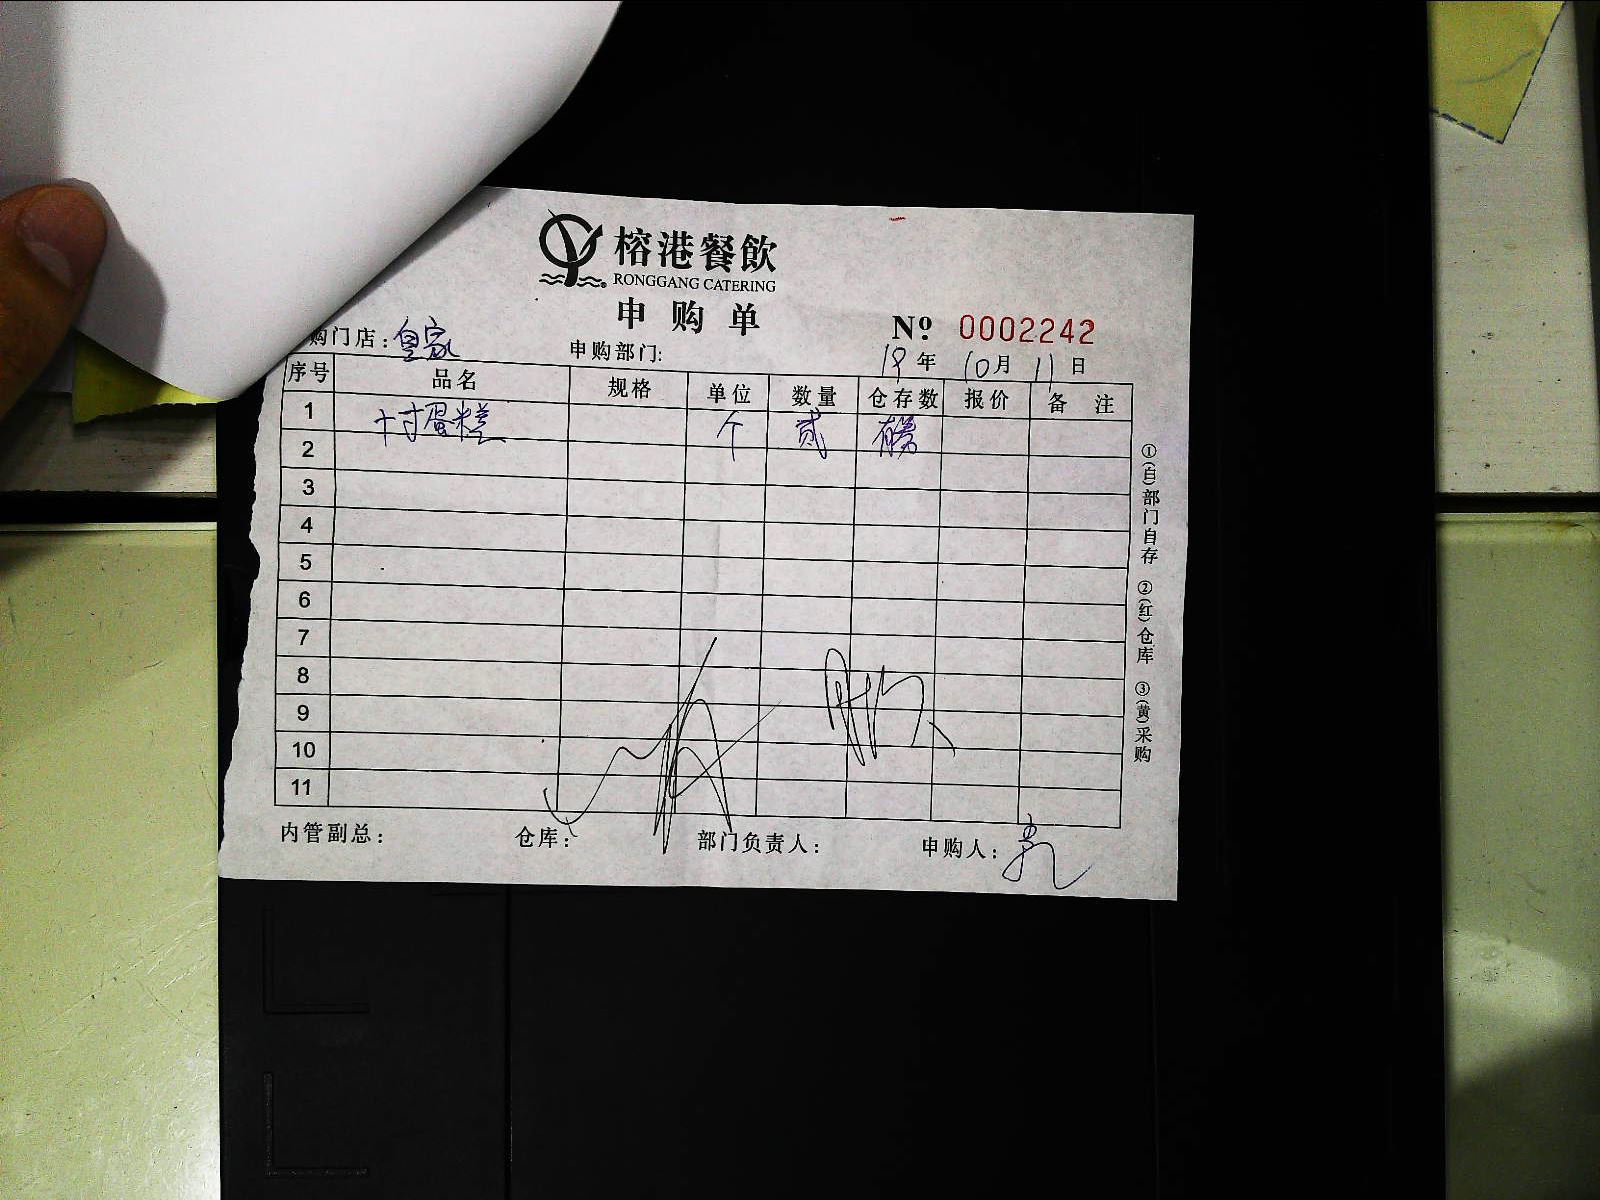 榕港餐飲
RONGGANG CATERING
申购单
Nº 0002242
购门店：皇家 申购部门: 19年10月11日
序号 品名 规格 单位 数量 仓存数 报价 备注
1 十寸蛋糕 个 贰
2
3
4
5
6
7
8
9
10
11
内管副总： 仓库： 部门负责人： 申购人：
①(白)部门自存 ②(红)仓库 ③(黄)采购